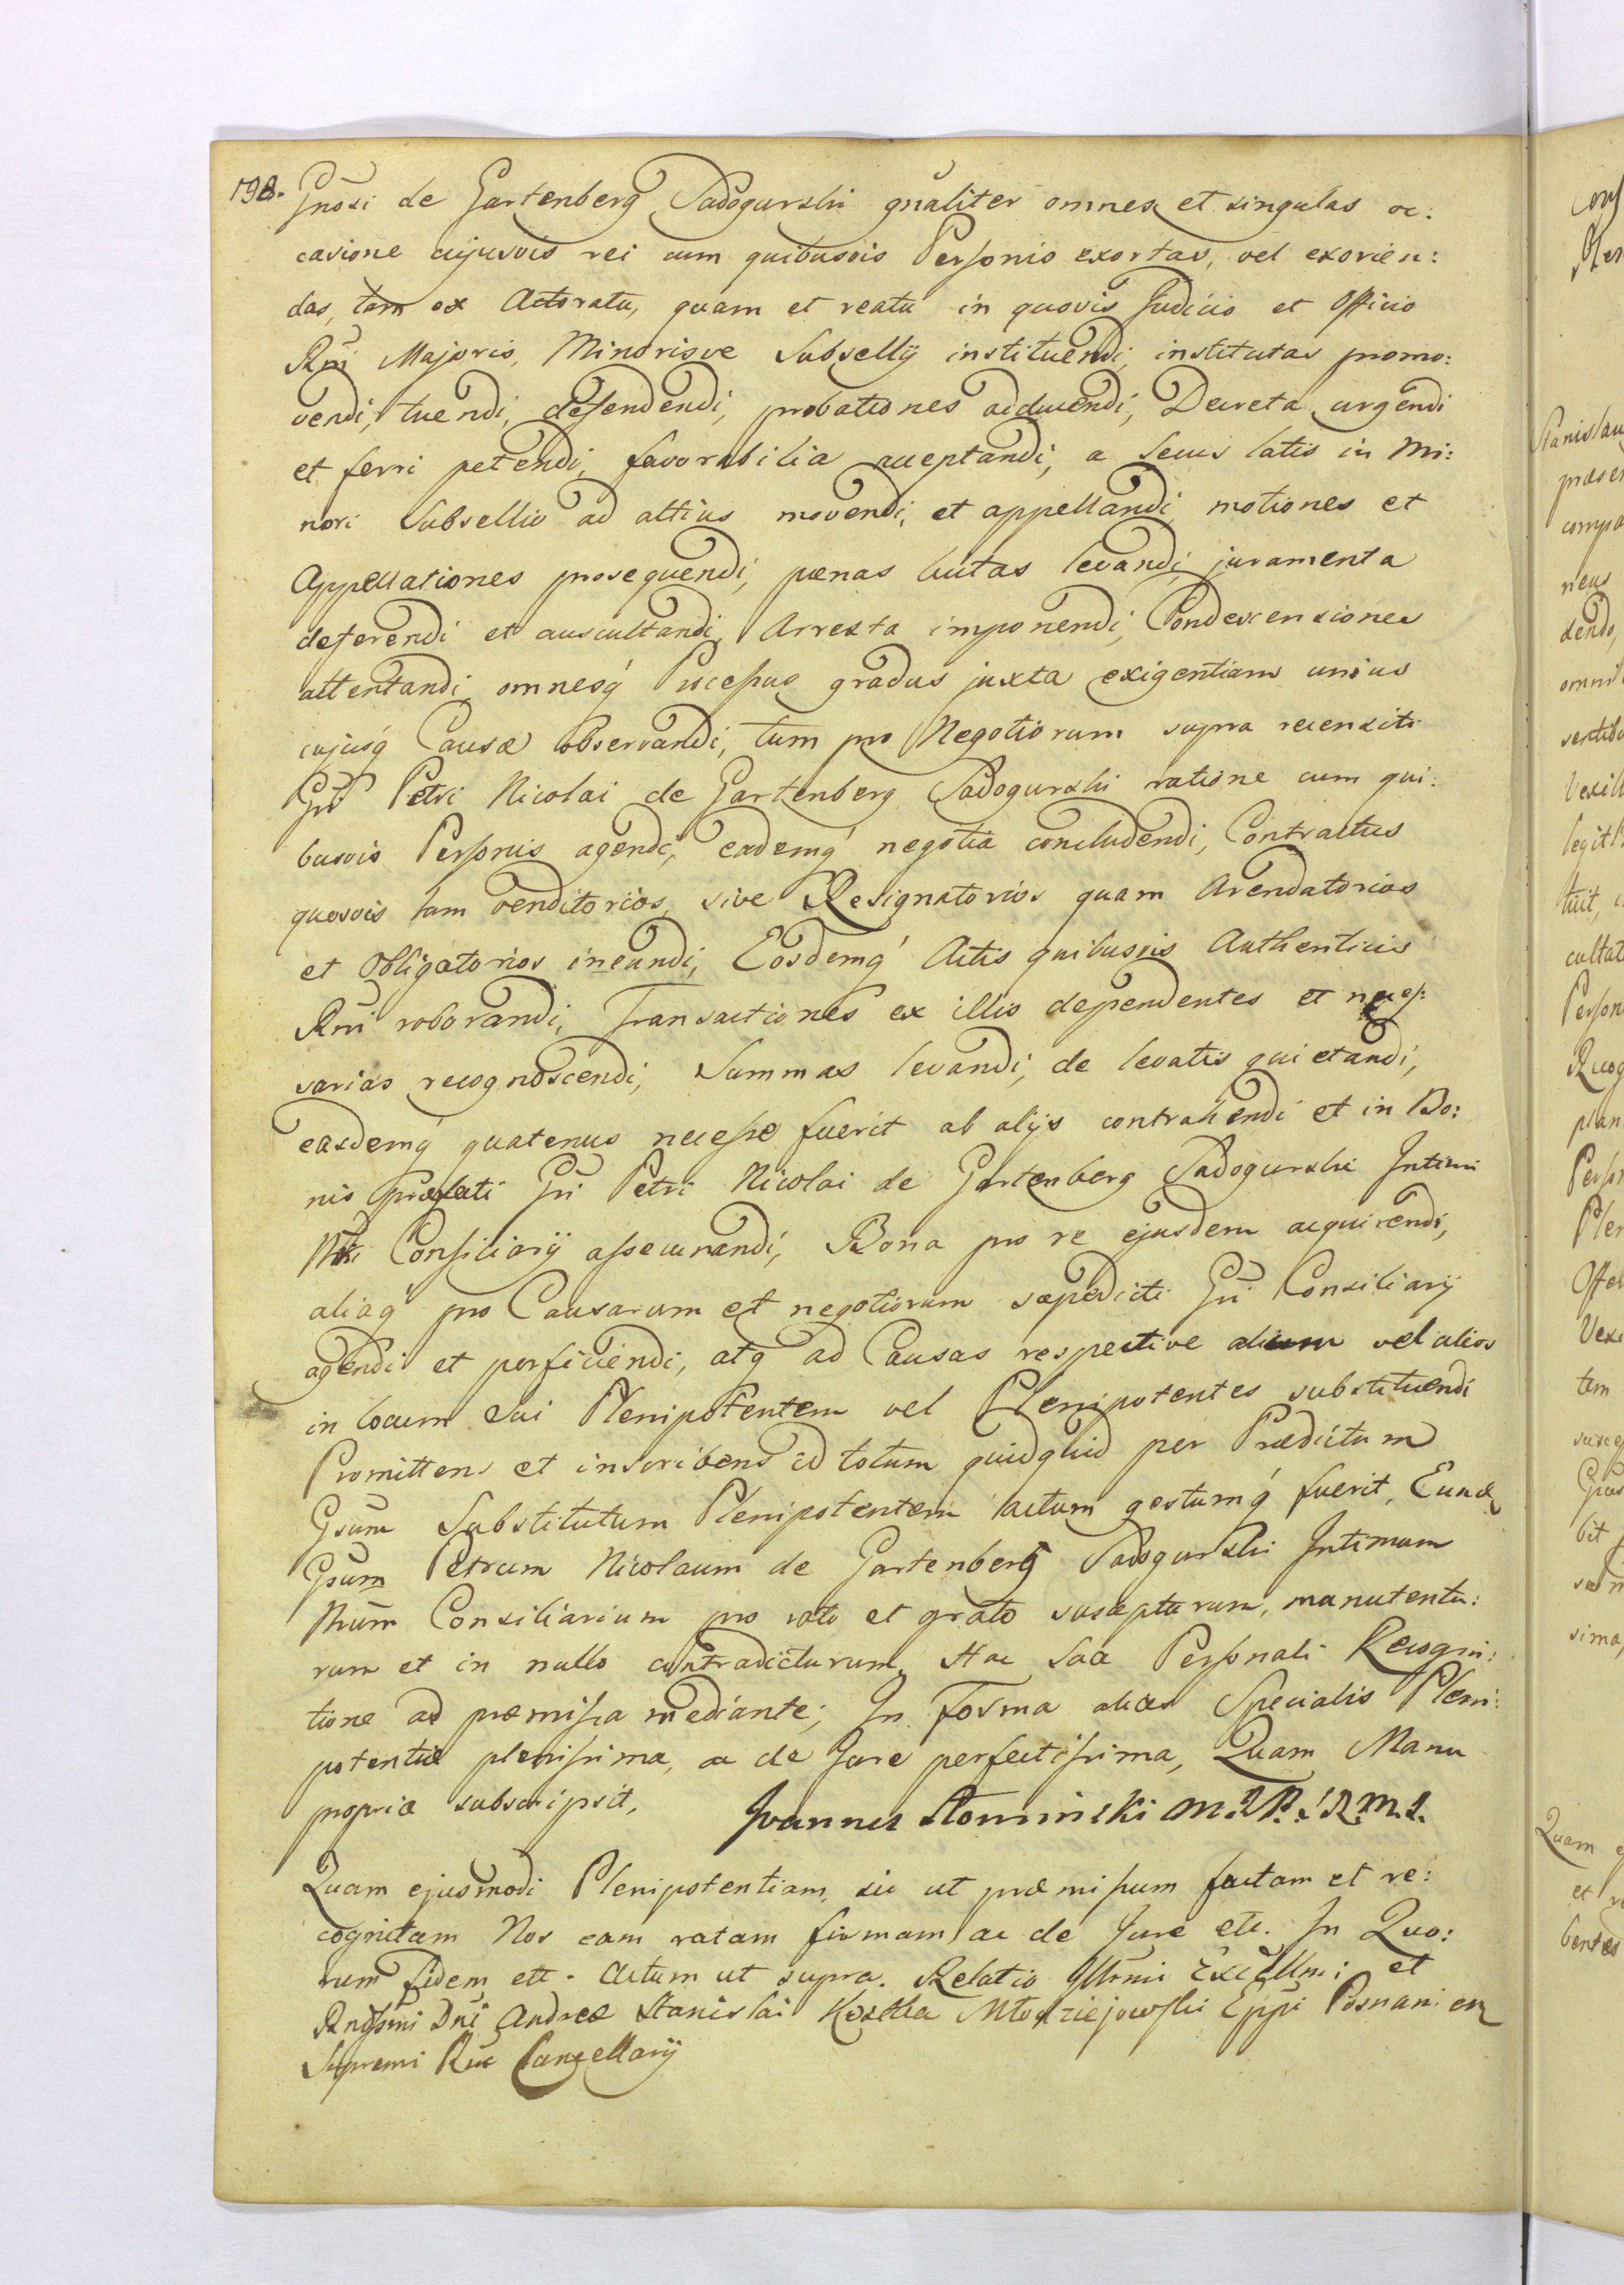 198.
Gnosi de Gartenberg Sadogurski gnaliter omnes et singulas oc:
casione cujusvis rei cum quibusvis Personis exortas, vel exorien:
das, tam ex Actoratu, quam et reatu in quovis Judicio et Officio
Rni Majoris, Minorisve Subsellij instituendi, institutas promo:
vendi, tuendi, defendendi, probationes adducendi, Decreta urgendi
et ferri petendi, favorabilia acceptandi, a secus latis in Mi:
nori Subsellio ad altius movendi, et appellandi, motiones et
Appellationes prosequendi, pœnas luitas levandi, juramenta
deferendi et auscultandi, Arresta imponendi, Condescensiones
attentandi omnesq́ Processus gradus juxta exigentiam unius
cujusq́ Causæ observandi, tum pro Negotiorum supra recensiti
Gsi Petri Nicolai de Gartenberg Sadogurski ratione cum qui:
busvis Personis agendi, eademq́ negotia concludendi, Contractus
quosvis tam venditorios, sive Resignatorios quam Arendatorios
et Obligatorios ineundi, Eosdemq́ Actis quibusvis Authenticis
Rni roborandi, Transactiones ex illis dependentes et necess:
sarias recognoscendi, Summas levandi, de levatis quietandi,
easdemq́ quatenus necesse fuerit ab alijs contrahendi et in Bo:
nis præfati Gsi Petri Nicolai de Gartenberg Sadogurski Intimi
Nri Consiliarij assecurandi, Bona pro re ejusdem acquirendi,
aliaq́ pro Causarum et negotiorum sæpedicti Gsi Consiliarij
agendi et perficiendi, atq́ ad Causas respective alium vel alios
in locum Sui Plenipotentem vel Plenipotentes substituendi
Promittens et inscribens id totum quidquid per Prædictum
Gsum Substitutum Plenipotentem actum gestumq́ fuerit, Eund
Gsum Petrum Nicolaum de Gartenberg Sadogurski Intimum
Nrum Consiliarium pro rato et grato suscepturum, manutentu:
rum et in nullo contradicturum. Hac Sua Personali Recogni:
tione ad præmissa mediante; In Forma alias Specialis Pleni:
potentiæ plenissima, ac de Jure perfectissima, Quam Manu
propria subscripsit,
Joannes Słominski M.
Quam ejusmodi Plenipotentiam, sic ut præmissum factam et re:
cognitam Nos eam ratam firmam ac de Jure etc. In Quo:
rum fidem ett. Actum ut supra. Relatio Illrmi Excellmi et
Rndssmi Dni Andreæ Stanislai Kostka Młodziejowski Eppi Posnanien
Supremi Rni Cancellarij